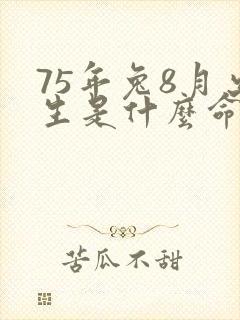 75年兔8月出
生是什麽命
苦瓜不甜